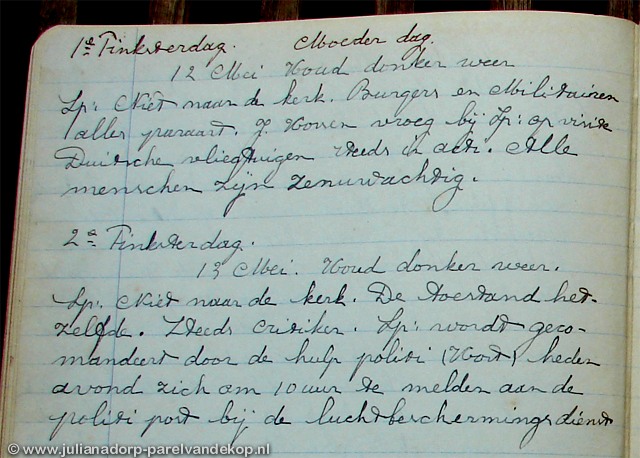 1e Pinksterdag. Moeder dag.
12 Mei Koud donker weer
Sp: Niet naar de kerk. Burgers en Militairen
alles paraat. J. Hoven vroeg bij Sp: op visite
Duitsche vliegtuigen steeds in acti. Alle
menschen zijn zenuwachtig.
2e Pinksterdag.
13 Mei. Koud donker weer.
Sp: Niet naar de kerk. De toestand het-
zelfde. Steeds critiker. Sp: wordt geco-
mandeert door de hulp politi (Hout) heden
avond zich om 10 uur te melden aan de
politi post bij de luchtbeschermingsdienst
© www.julianadorp-parelvandekop.nl